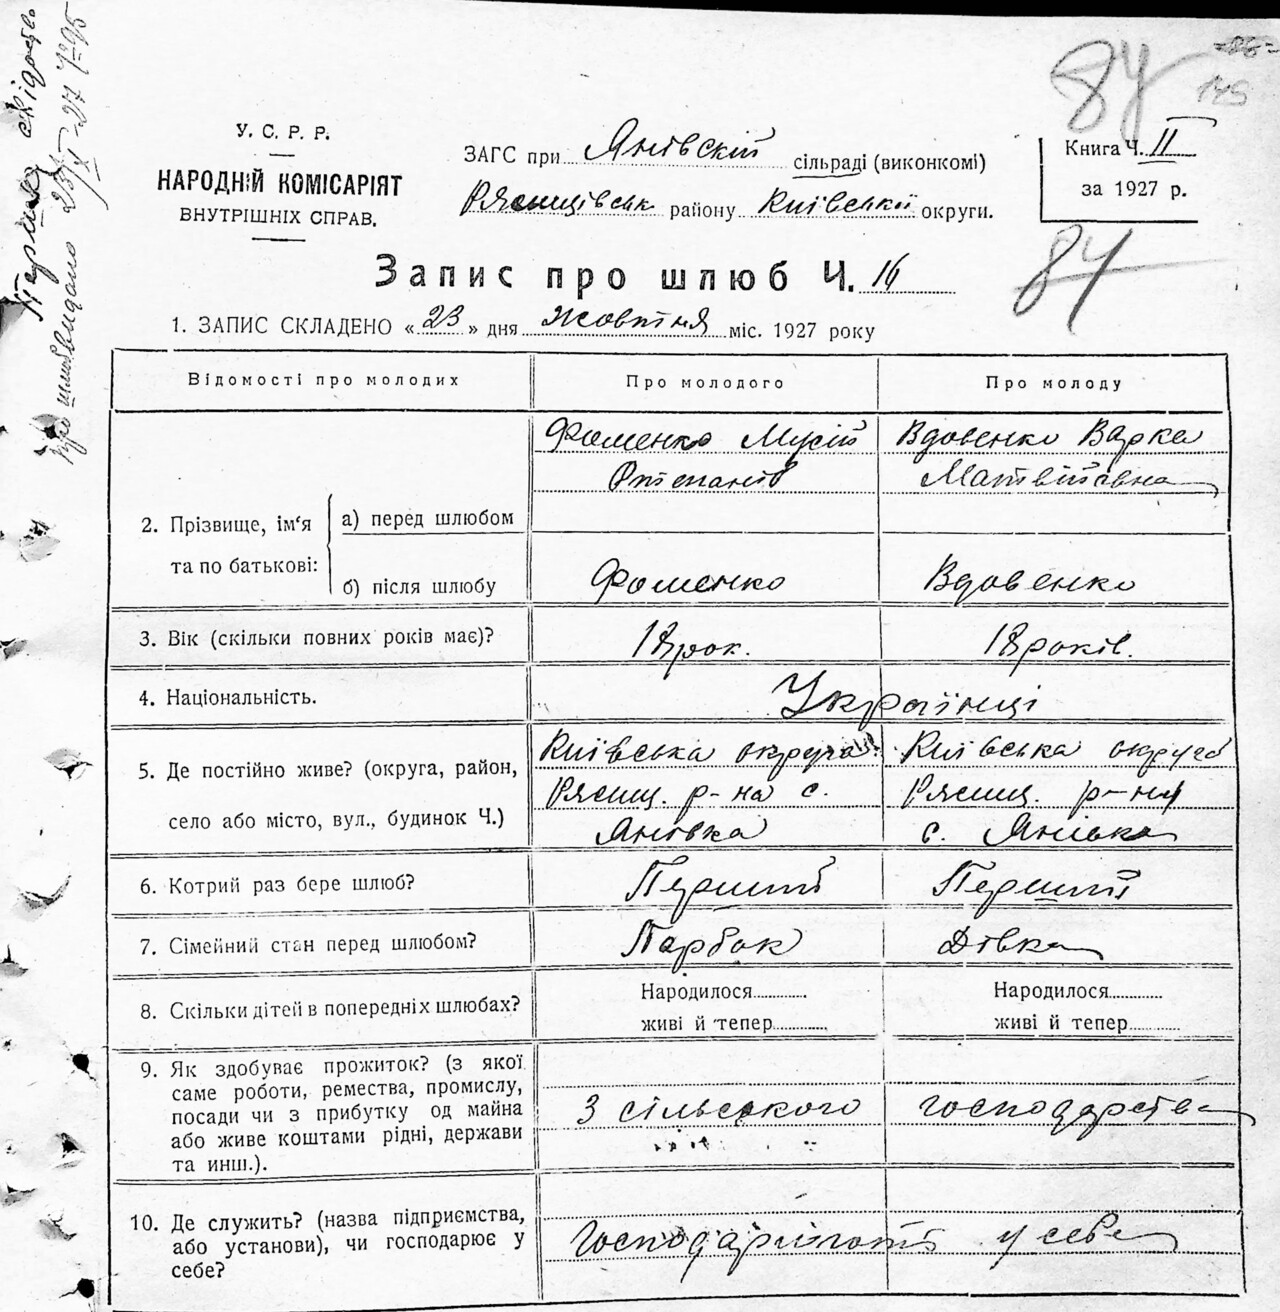 У. С. Р. Р.
НАРОДНІЙ КОМІСАРІЯТ
ВНУТРІШНІХ СПРАВ.
ЗАГС при Янівській сільраді (виконкомі)
району Київської округи.
Книга Ч. II
за 1927 р.
84
145
84
Запис про шлюб Ч. 16
1. ЗАПИС СКЛАДЕНО «23» дня жовтня міс. 1927 року
Відомості про молодих
Про молодого
Про молоду
2. Прізвище, ім‘я та по батькові:
а) перед шлюбом
Фоменко Мусій
Вдовенко Варка
Матвіївна
б) після шлюбу
Фоменко
Вдовенко
3. Вік (скільки повних років має)?
18 рок.
18 років.
4. Національність.
Українці
5. Де постійно живе? (округа, район,
село або місто, вул., будинок Ч.)
Київська округа
р-на с.
Янівка
Київська округа
р-на
с. Янівка
6. Котрий раз бере шлюб?
Перший
Перший
7. Сімейний стан перед шлюбом?
Парубок
Дівка
8. Скільки дітей в попередніх шлюбах?
Народилося
живі й тепер
Народилося
живі й тепер
9. Як здобуває прожиток? (з якої
саме роботи, ремества, промислу,
посади чи з прибутку од майна
або живе коштами рідні, держави
та инш.).
З сільського господарства
10. Де служить? (назва підприємства,
або установи), чи господарює у
себе?
у себе